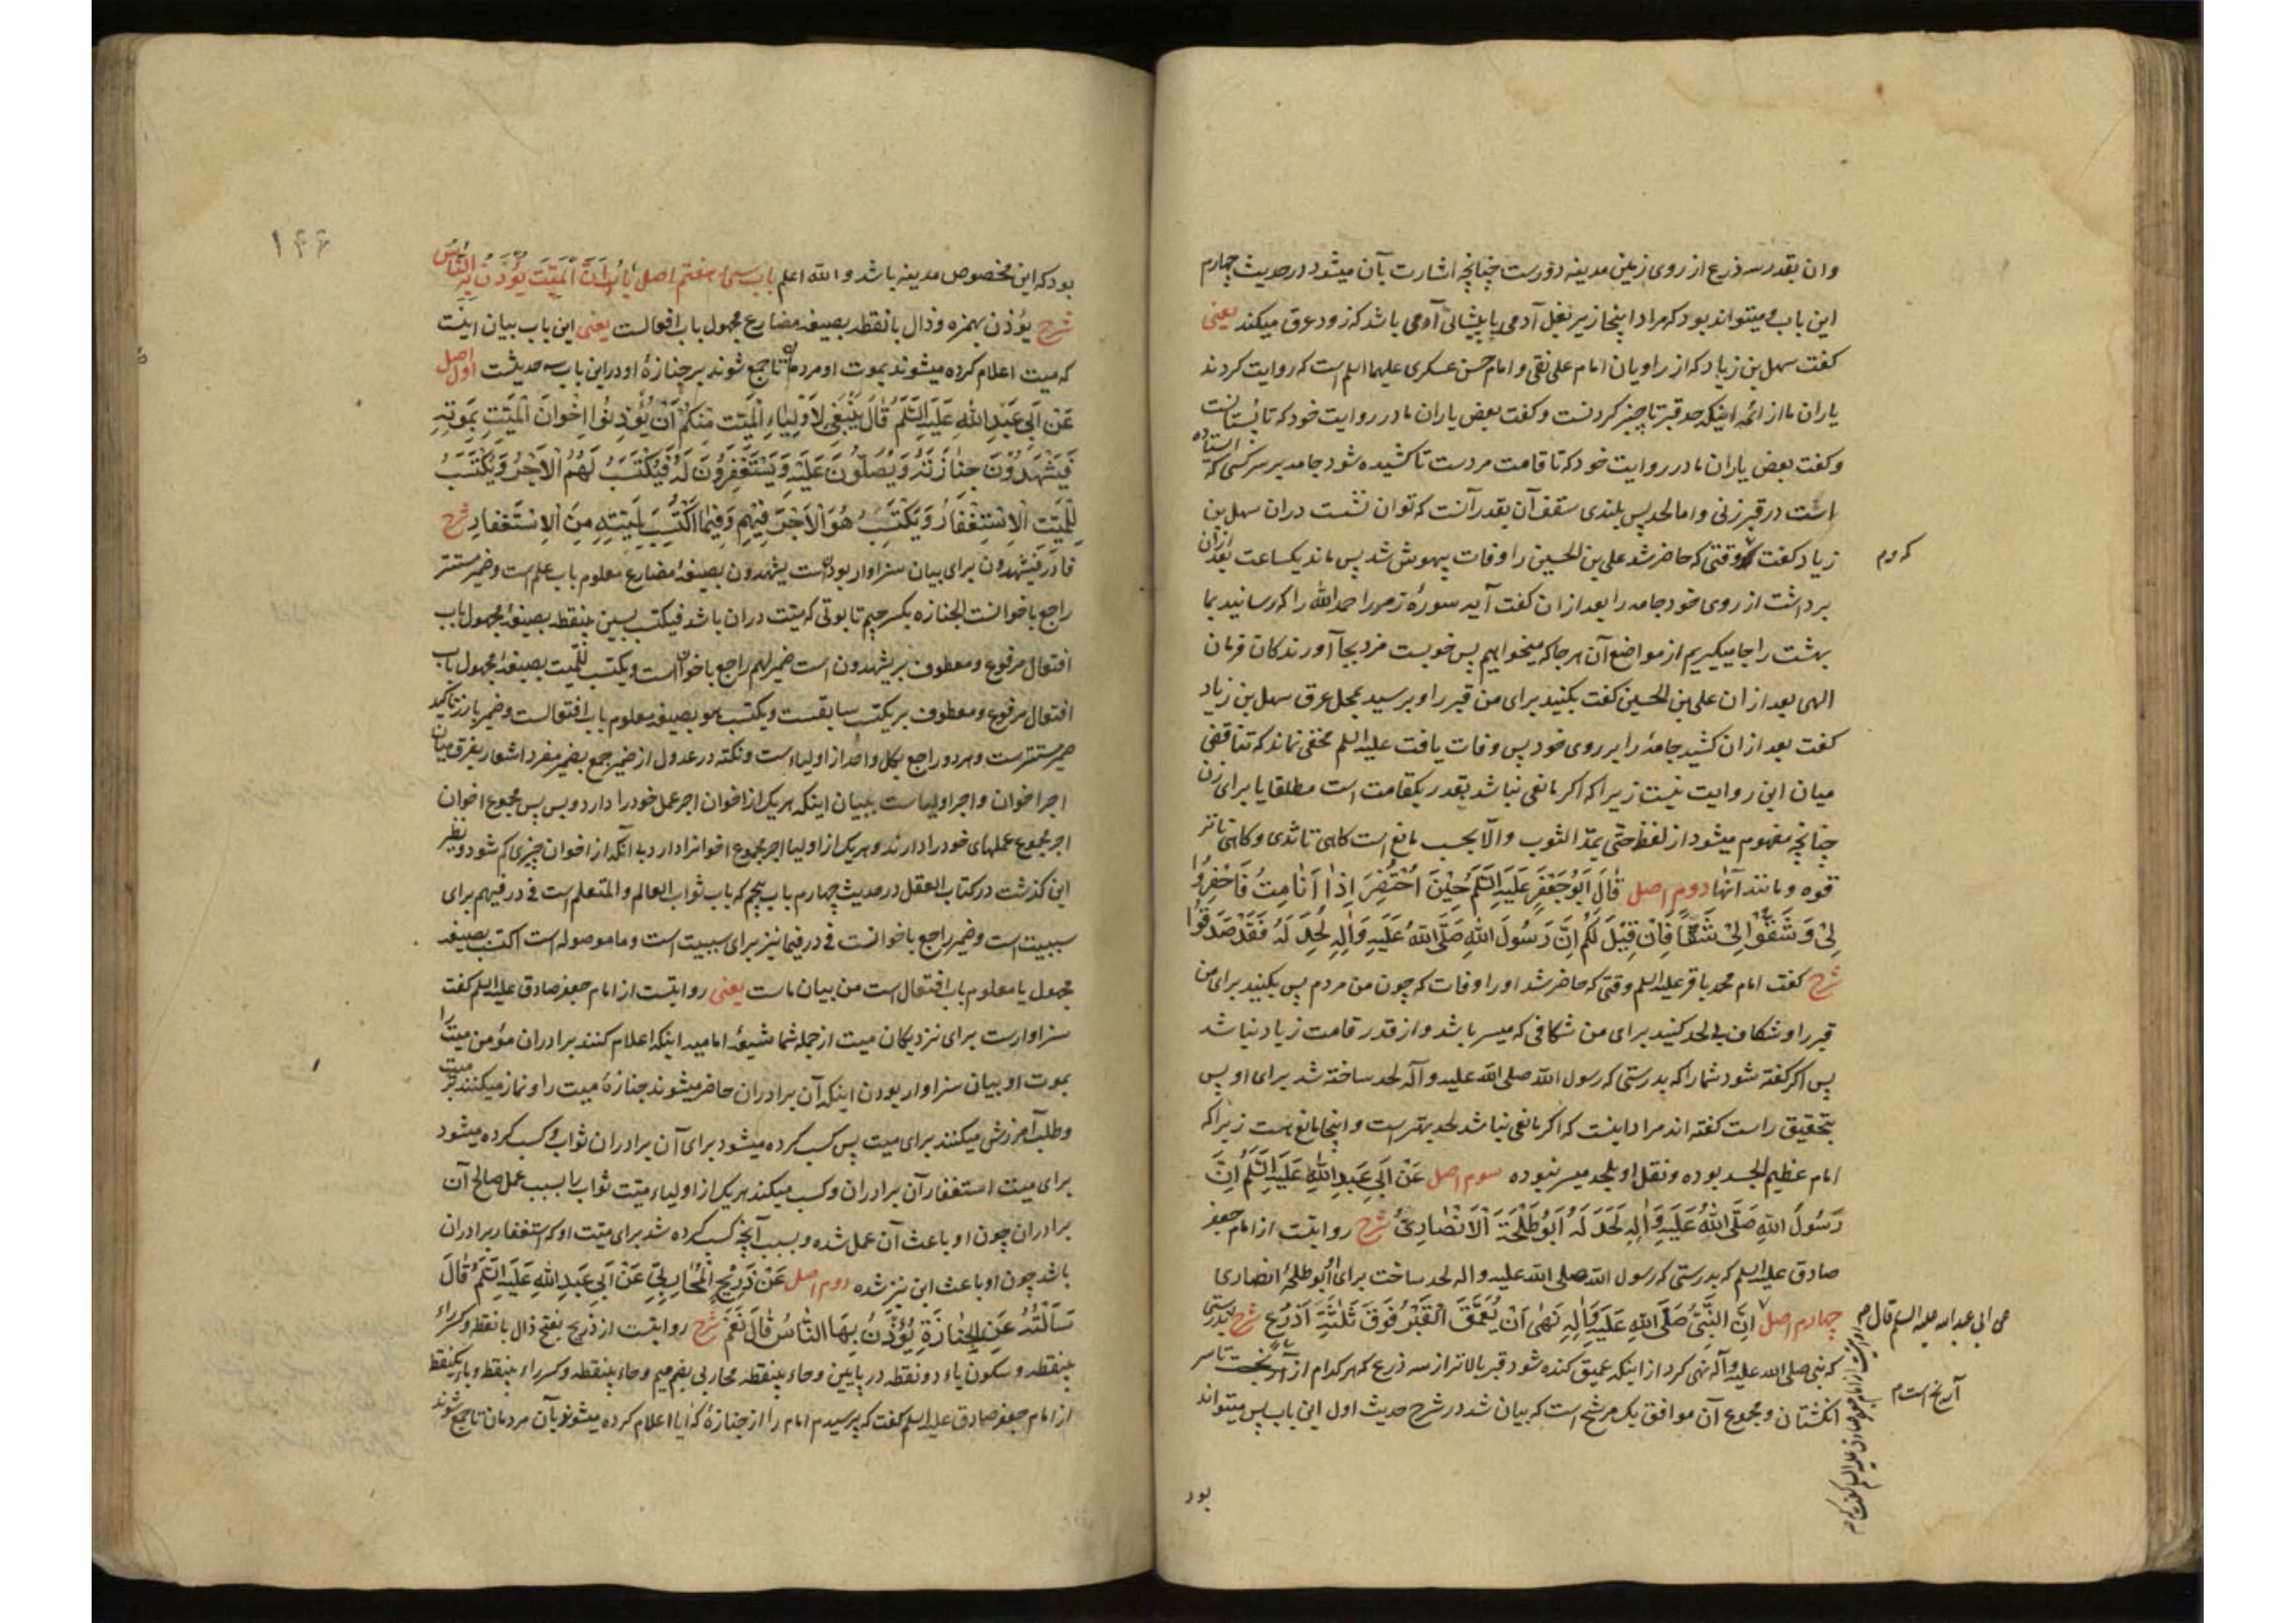 وان بقدر سه ذرع از روی زمین مدینه دورست چنانچه اشارت بآن میشود در حدیث چهارم
این باب و میتواند بود که مراد اینجا زیر بغل آدمی یا پیشانی آدمی باشد که زود عرق میکند یعنی
کفت سهل بن زیاد که از راویان امام علی نقی و امام حسن عسکری علیهما السلم است که روایت کردند
یاران ما از ائمه اینکه حد قبر تا چنبر کردنست و کفت بعض یاران ما در روایت خود که تا پستانست
و کفت بعض یاران ما در روایت خود که تا قامت مردست تا کشیده شود جامه بر سر کسی که ایستاده
است در قبر زنی و اما لحد پس بلندی سقف آن بقدر آنست که توان نشست در ان سهل بن
زیاد کفت که وقتی که حاضر شد علی بن الحسین را وفات بیهوش شد پس ماند یکساعت بعد ازان
که دم
برداشت از روی خود جامه را بعد از ان کفت آیه سورهٔ زمر را حمد الله را که رسانید بما
بهشت را جا میکیریم از مواضع آن هر جا که میخواهیم پس خوبست مزد بجا آورندکان فرمان
الهی بعد از ان علی بن الحسین کفت بکنید برای من قبر را و برسید بمحل عرق سهل بن زیاد
کفت بعد از ان کشید جامهٔ را بر روی خود پس وفات یافت علیه السلم مخفی نماند که تناقضی
میان این روایت نیست زیرا که اکر مانعی نباشد بقدر یکقامت است مطلقا یا برای زن
چنانچه مفهوم میشود از لفظ حتی یمد الثوب و الا بحسب مانع است کاهی تا ثدی و کاهی تا تر
قوه و مانند آنها دوم اصل قَالَ اَبُو جَعْفَرٍ عَلَیْهِ السَّلَمُ حِیْنَ اُحْتُضِرَ اِذٰا اَنَا مِتُّ فَاحْفِرُوا
لِیْ وَ شُقُّوا لِیْ شَقًّا فَاِنْ قِیْلَ لَکُمْ اِنَّ رَسُولَ اللّٰهِ صَلَّی اللّٰهُ عَلَیْهِ وَاٰلِهِ لُحِدَ لَهُ فَقَدْ صَدَقُوْا
شرح کفت امام محمد باقر علیه السلم وقتی که حاضر شد او را وفات که چون من مردم پس بکنید برای من
قبر را و شکاف بی لحد کنید برای من شکافی که میسر باشد و از قدر قامت زیاد نباشد
پس اکر کفته شود شما را که بدرستی که رسول الله صلی الله علیه و آله لحد ساخته شد برای او پس
بتحقیق راست کفته اند مراد اینست که اکر مانعی نباشد لحد بهتر است و اینجا مانع هست زیرا که
امام عظیم الجسد بوده و نقل او بلحد میسر نبوده سوم اصل عَنْ اَبِی عَبْدِ اللّٰهِ عَلَیْهِ السَّلَمُ اِنَّ
رَسُولَ اللّٰهِ صَلَّی اللّٰهُ عَلَیْهِ وَاٰلِهِ لَحَدَ لَهُ اَبُو طَلْحَةَ الْاَنْصٰارِیُّ شرح روایتست از امام جعفر
صادق علیه السلم که بدرستی که رسول الله صلی الله علیه و اله لحد ساخت برای او ابو طلحهٔ انصاری
چهارم اصل اِنَّ النَّبِیَّ صَلَّی اللّٰهُ عَلَیْهِ وَاٰلِهِ نَهٰی اَنْ یُعَمَّقَ الْقَبْرُ فَوْقَ ثَلٰثَةِ اَذْرُعٍ شرح بدرستی
عن ابی عبد الله علیه السلم قال م
که نبی صلی الله علیه و آله نهی کرد از اینکه عمیق کنده شود قبر بالاتر از سه ذرع که هر کدام از تا سر
آرنج است م
انکشتان و مجموع آن موافق یک مرشح است که بیان شد در شرح حدیث اول این باب پس میتواند
روایتست از امام جعفر صادق علیه السلم کفت که م
بود
۱۴۴
بود که این مخصوص مدینه باشد و الله اعلم باب سی و هفتم اصل بَابُ اَنَّ الْمَیِّتَ یُؤْذَنُ بِهِ النَّاسُ
شرح یؤذن بهمزه و ذال با نقطه بصیغهٔ مضارع مجهول باب افعالست یعنی این باب بیان اینست
که میت اعلام کرده میشوند بموت او مردمان تا جمع شوند بر جنازهٔ او در این باب سه حدیثست اول اصل
عَنْ اَبِی عَبْدِ اللّٰهِ عَلَیْهِ السَّلَمُ قَالَ یَنْبَغِی لِاَوْلِیٰاءِ الْمَیِّتِ مِنْکُمْ اَنْ یُؤْذِنُوا اِخْوَانَ الْمَیِّتِ بِمَوْتِهِ
فَیَشْهَدُوْنَ جِنٰازَتَهُ وَیُصَلُّونَ عَلَیْهِ وَیَسْتَغْفِرُونَ لَهُ فَیُکْتَسَبُ لَهُمُ الْاَجْرُ وَیُکْتَسَبُ
لِلْمَیِّتِ الْاِسْتِغْفَارُ وَیَکْتَسِبُ هُوَ الْاَجْرَ فِیْهِمْ وَفِیْمَا اکْتُسِبَ لِمَیِّتِهِ مِنَ الْاِسْتِغْفَارِ شرح
فا در فیشهدون برای بیان سزاوار بودنست یشهدون بصیغهٔ مضارع معلوم باب علم است و ضمیر مستتر
راجع باخوانست الجنازه بکسر جیم تابوتی که میت دران باشد فیکتسب بسین بینقطه بصیغهٔ مجهول باب
افتعال مرفوع و معطوف بر یشهدون است ضمیر لهم راجع باخوانست و یکتسب للمیت بصیغهٔ مجهول باب
افتعال مرفوع و معطوف بر یکتسب سابقست و یکتسب هو بصیغهٔ معلوم باب افتعالست و ضمیر بارز تاکید
ضمیر مستترست و هر دو راجع بکل واحد از اولیاء است و نکته در عدول از ضمیر جمع بضمیر مفرد اشعار بفرق میان
اجر اخوان و اجر اولیاست ببیان اینکه هر یک از اخوان اجر عمل خود را دارد و بس پس مجموع اخوان
اجر مجموع عملهای خود را دارند و هر یک از اولیا اجر مجموع اخوانرا دارد بی آنکه از اخوان چیزی کم شود و نظیر
این کذشت در کتاب العقل در حدیث چهارم باب پنجم که باب ثواب العالم و المتعلم است فی در فیهم برای
سببیت است و ضمیر راجع باخوانست فی در فیما نیز برای سببیت است و ما موصوله است اکتسب بصیغهٔ
مجهول یا معلوم باب افتعال است من بیان ماست یعنی روایتست از امام جعفر صادق علیه السلم کفت
سزاوارست برای نزدیکان میت از جمله شما شیعهٔ امامیه اینکه اعلام کنند برادران مؤمن میت را
بموت او بیان سزاوار بودن اینکه آن برادران حاضر میشوند جنازهٔ میت را و نماز میکنند بر میت
و طلب آمرزش میکنند برای میت پس کسب کرده میشود برای آن برادران ثواب و کسب کرده میشود
برای میت استغفار آن برادران و کسب میکند هر یک از اولیاء میت ثواب را بسبب عمل صالح آن
برادران چون او باعث آن عمل شده و بسبب آنچه کسب کرده شد برای میت او که استغفار برادران
باشد چون او باعث این نیز شده دوم اصل عَنْ ذَرِیْحٍ الْمُحٰارِبِیِّ عَنْ اَبِی عَبْدِ اللّٰهِ عَلَیْهِ السَّلَمُ قَالَ
سَاَلْتُهُ عَنِ الْجِنٰازَةِ یُؤْذَنُ بِهَا النَّاسُ قَالَ نَعَمْ شرح روایتست از ذریح بفتح ذال با نقطه و کسر راء
بینقطه و سکون یاء دو نقطه در پایین و حاء بینقطه محاربی بضم میم و حاء بینقطه و کسر راء بینقطه و باء یکنقطه
از امام جعفر صادق علیه السلم کفت که پرسیدم امام را از جنازهٔ که ایا اعلام کرده میشوند بآن مردمان تا جمع شوند